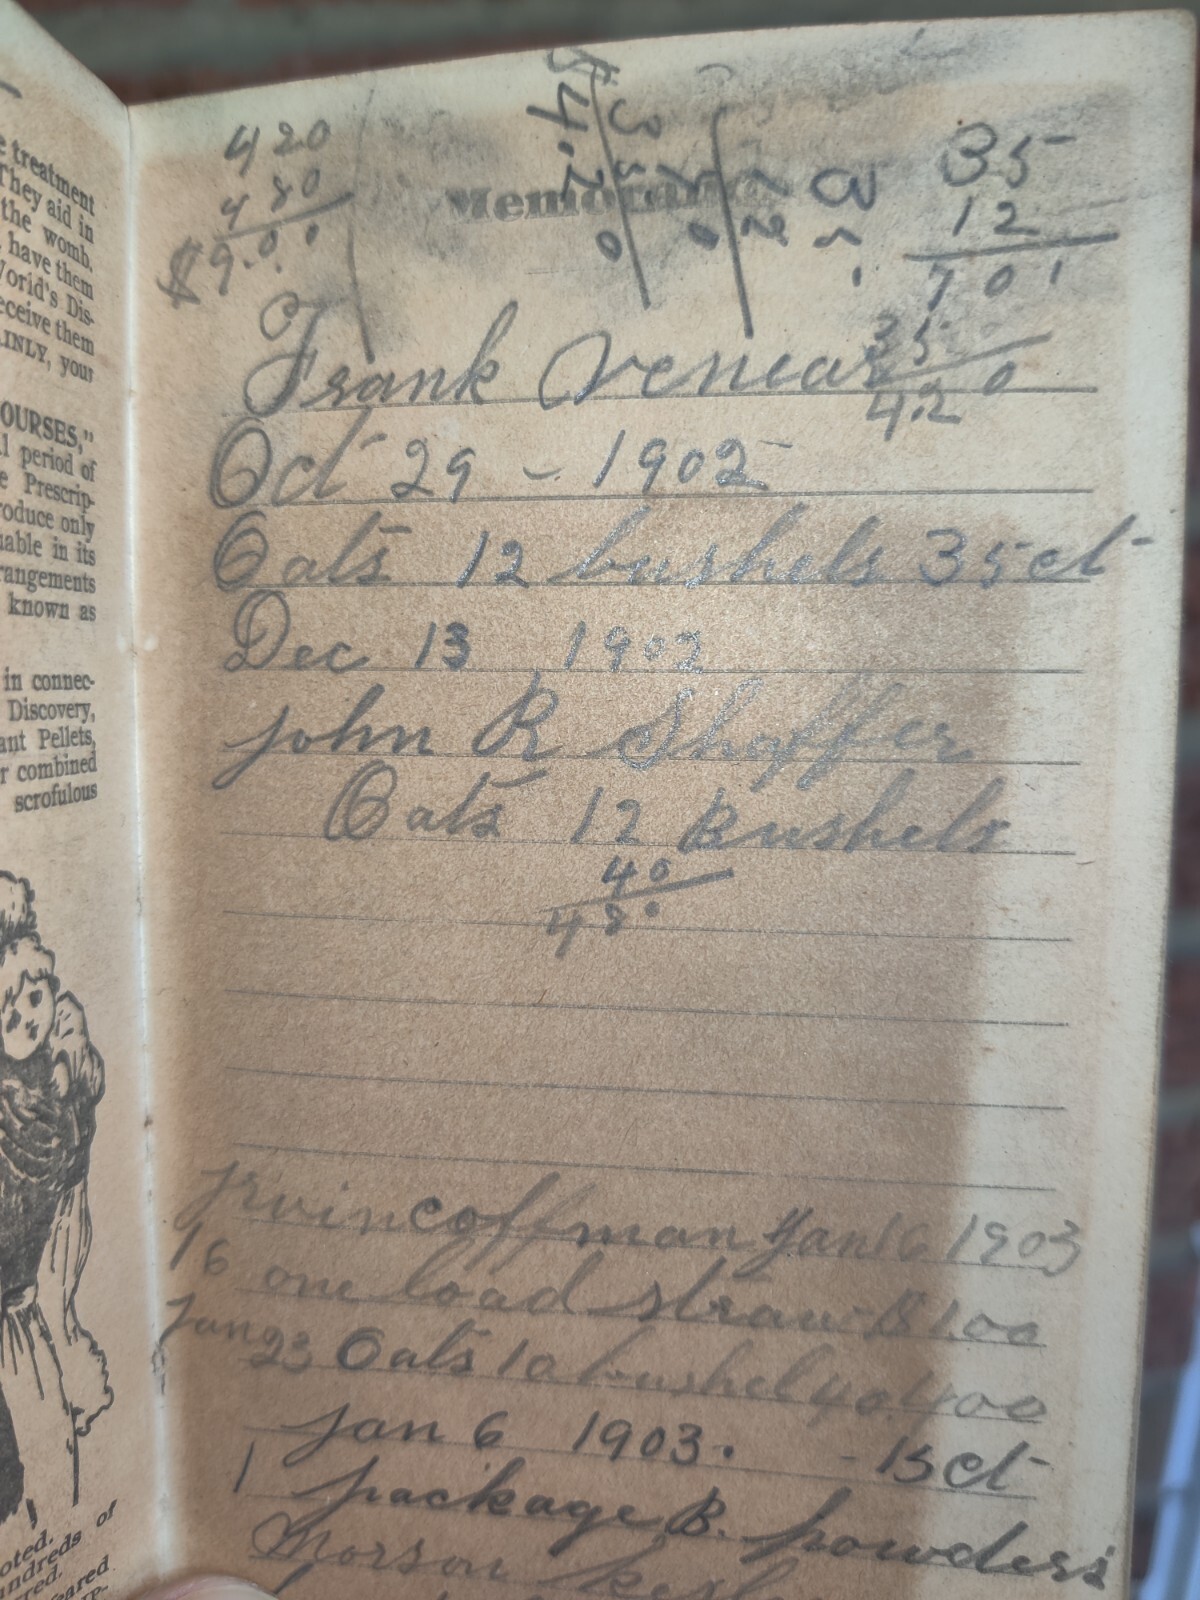 e treatment
They aid in
the womb.
have them
World's Dis-
eceive them
AINLY, your
OURSES,"
l period of
e Prescrip-
roduce only
uable in its
rangements
known as
in connec-
Discovery,
ant Pellets,
r combined
scrofulous
oted.
undreds of
red.
eared
Memoranda
420
480
$9.00
$4.20
350
70
12
35
35
12
70
35
420
Frank
Oct 29 - 1902
Oats 12 bushels 35ct
Dec 13 1902
john R Shaffer
Oats 12 Bushels
40
480
Irvin coffman Jan 16 1903
16 one load straw $1.00
Jan 23 Oats 10 bushel 40. 400
jan 6 1903. - 15ct
1 package B. powders